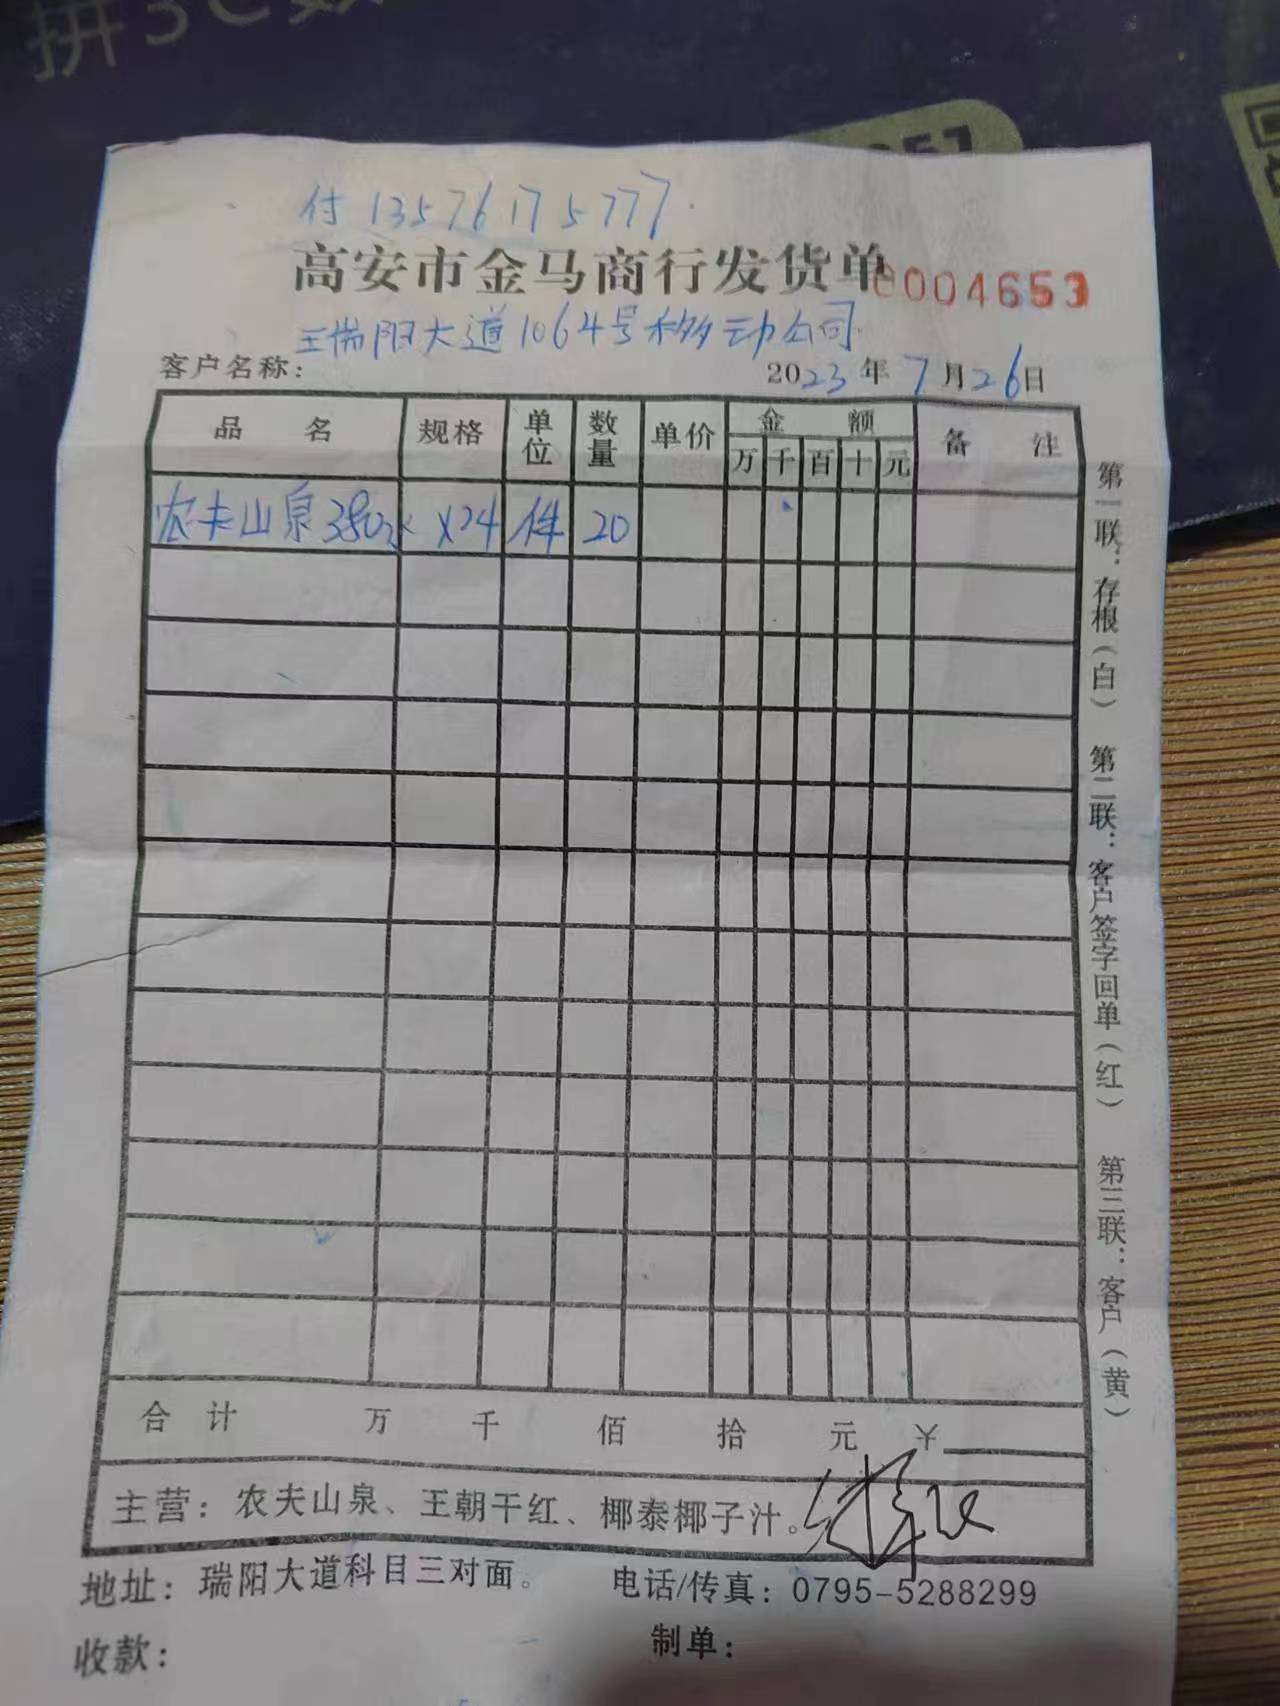 拼3C数
付 13576175777.
高安市金马商行发货单
0004653
瑞阳大道1064号移动公司
客户名称:
2023年7月26日
品 名 规格 单位 数量 单价 金 额 备 注
万 千 百 十 元
农夫山泉380 X24 件 20
合 计 万 千 佰 拾 元 ￥
主营: 农夫山泉、王朝干红、椰泰椰子汁。
地址: 瑞阳大道科目三对面。 电话/传真: 0795-5288299
收款: 制单:
第一联: 存根(白) 第二联: 客户签字回单(红) 第三联: 客户(黄)